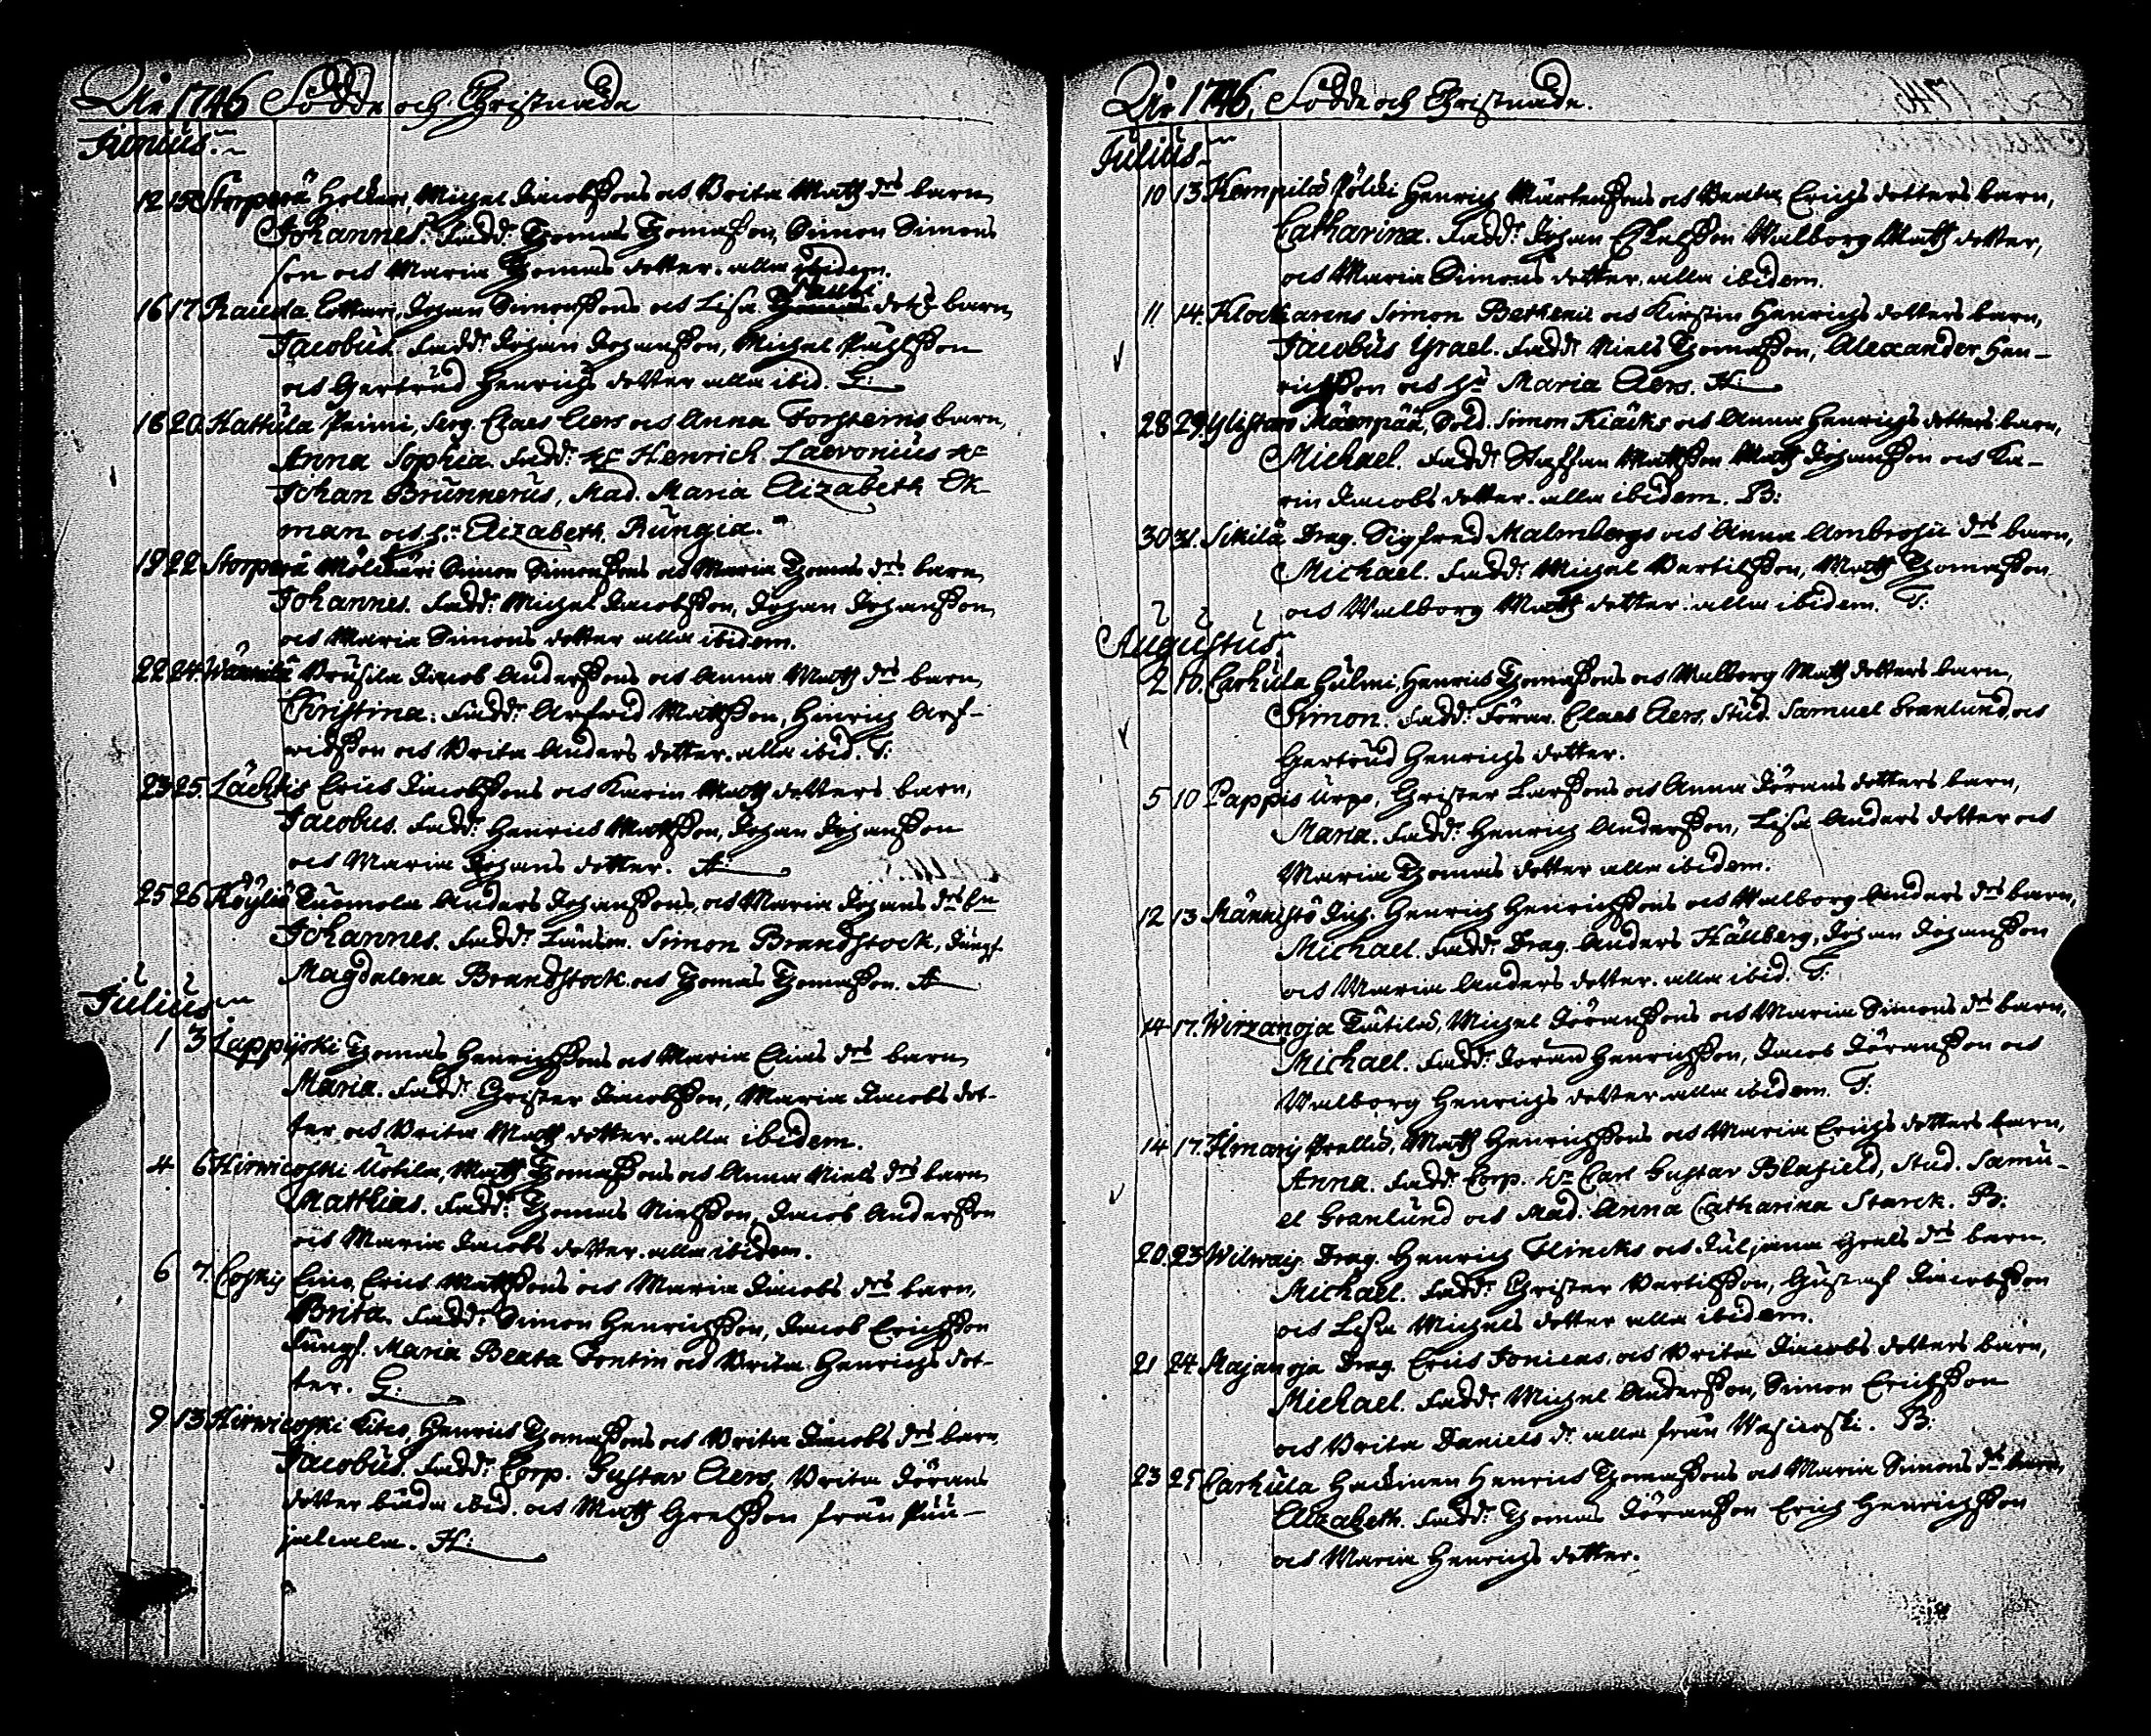 Åhr 1746 Födde och Christnade
Junius.
12 15 Storperä Holkeri, Michel Jacobssons och Brita Matts drs barn,
Johannes. Fadd: Thomas Thomasson, Simon Simons
son och Maria Thomas dotter. alla ibidem.
Pauli
16 17 Rauda Cottari, Johan Simonssons och Lisa dotrs barn,
Jacobus. Fadd: Johan Johansson, Michel Påhlsson
och Gertrud Henrichs dotter alla ibid. G:
18 20 Kattula Peimi, Serg. Claes Aers och Anna Forsteins barn,
Anna Sophia. Fadd: Hr Henrich Laevonius Hr
Johan Brunnerus, Mad. Maria Elizabeth Ek
man och h: Elizabeth Rungia.
19 22 Storperä Mölsäri Simon Simonssons och Maria Thomas drs barn,
Johannes. Fadd: Michel Jacobsson, Johan Johansson,
och Maria Simons dotter alla ibidem.
22 24 Wännilä Prusila Jacob Anderssons och Anna Matts drs barn,
Christina. Fadd: Arfvid Mattsson, Hinrich Arf-
vidsson och Brita Anders dotter. alla ibid. T:
23 25 Lächtis Erics Jacobssons och Karin Matts dotters barn,
Jacobus. Fadd: Henrich Mattsson, Johan Johansson
och Maria Johans dotter. A:
25 26 Köyliö Tuomola Anders Johanssons, och Maria Johans drs bn
Johannes. Fadd: Länsm. Simon Brandstock, Jungf.
Magdalena Brandstock och Thomas Thomasson. A
Julius
1 3 Lappijoki Thomas Henrichssons och Maria Clais drs barn,
Maria. Fadd: Christer Jacobsson, Maria Jacobs dot-
ter och Brita Matts dotter. alla ibidem.
4 6 Hirwicoski Uotila, Matts Thomassons och Anna Niels drs barn,
Matthias. Fadd: Thomas Nielsson, Jacob Andersson
och Maria Jacobs dotter. alla ibidem.
6 7 Coskis Eric Mattssons och Maria Jacobs drs barn,
Brita. Fadd: Simon Henrichsson, Jacob Erichsson
Jungf. Maria Beata Pontin och Brita Henrichs dot-
ter. G:
9 13 Hirwicoski Henrich Thomassons och Brita Jacobs drs barn,
Jacobus. Fadd: Corp. Gustav Aers, Brita Jörans
dotter båda ibid. och Matts Grelsson från Puu-
jalcala. H:
Åhr 1746, Födde och Christnade.
Julius
10 13 Kempilä Pöldi Henrich Mårtenssons och Beata Erichs dotters barn,
Catharina. Fadd: Johan Eskelsson Walborg Matts dotter,
och Maria Simons dotter. alla ibidem.
11 14 Klockarens Simon Bethenii och Kirstin Henrichs dotters barn,
Jacobus Ysrael. Fadd: Niels Thomasson, Alexander Hen-
richsson och hu Maria Aers. H:
28 29 Ylistaro Mäenpää, Sold. Simon Kiäcks och Anna Henrichs dotters barn,
Michael. Fadd: Staffan Mattsson Matts Johansson och Ka-
rin Jacobs dotter. alla ibidem. B:
30 31 Sikilä Drag. Sigfred Malmbergs och Anna Ambrosii drs barn,
Michael. Fadd: Michel Bertilsson, Matts Thomasson
och Walborg Matts dotter. alla ibidem. T:
Augustus
2 10 Carhula Hulmi, Henrics Thomassons och Walborg Matts dotters barn,
Simon. Fadd: Förar. Claes Aers, Stud. Samuel Granlund, och
Gertrud Henrichs dotter.
5 10 Pappis Urpo, Christer Larssons och Anna Jörans dotters barn,
Maria. Fadd: Henrich Andersson, Lisa Anders dotter och
Maria Thomas dotter alla ibidem.
12 13 Männistö Henrich Henrichssons och Walborg Anders drs barn,
Michael. Fadd: Drag. Anders Hällberg, Johan Johansson
och Maria Anders dotter. alla ibid. T:
14 17 Wirzanoja Tåtilas, Michel Jöranssons och Maria Simons drs barn,
Michael. Fadd: Joran Henrichsson, Jacob Jöransson och
Walborg Henrichs dotter alla ibidem. T:
14 17 Ilmarij Prellis, Matts Henrichssons och Maria Erichs dotters barn,
Anna. Fadd: Corp. Hr Carl Gustav Blafield, Stud. Samu-
el Granlund och Mad. Anna Catharina Starck. B:
20 23 Wilwais Drag. Henrich Flincks och Juljana Grels drs barn,
Michael. Fadd: Christer Bertilsson, Gustaf Jacobsson
och Lisa Michels dotter alla ibidem.
21 24 Majanoja Drag. Erics Jonicas och Brita Jacobs dotters barn,
Michael. Fadd: Michel Andersson, Simon Erichsson
och Brita Daniels dr alla från Wasicoski. B:
23 25 Carhula Haukinen Henrics Thomassons och Maria Simons drs barn,
Elizabeth. Fadd: Thomas Jöransson Erich Henrichsson
och Maria Henrichs dotter.